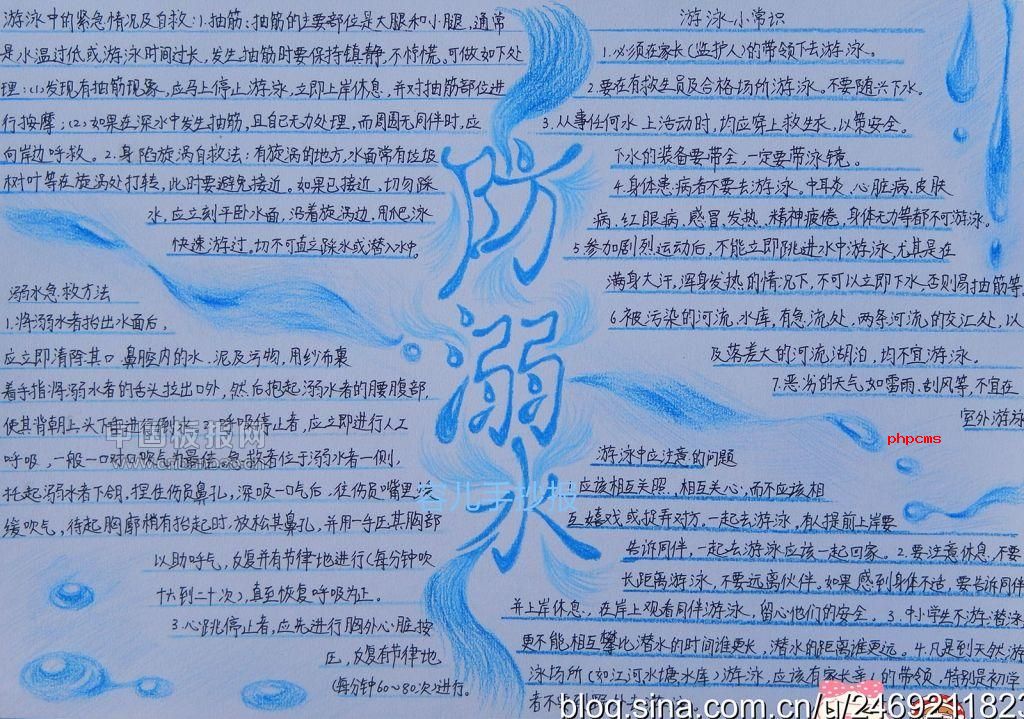 游泳中的紧急情况及自救:1.抽筋:抽筋的主要部位是大腿和小腿,通常
是水温过低或游泳时间过长,发生抽筋时要保持镇静,不恃慌。可做如下处
理:(1)发现有抽筋现象,应马上停止游泳,立即上岸休息,并对抽筋部位进
行按摩;(2)如果在深水中发生抽筋,且自己无力处理,而周围无同伴时,应
向岸边呼救。2.身陷旋涡自救法:有旋涡的地方,水面常有垃圾
树叶等在旋涡处打转,此时要避免接近。如果已接近,切勿踩
水,应立刻平卧水面,沿着旋涡边,用爬泳
快速游过。切不可直立踩水或潜入水中。
溺水急救方法
1.将溺水者抬出水面后,
应立即清除其口鼻腔内的水、泥及污物,用纱布裹
着手指将溺水者的舌头拉出口外,然后抱起溺水者的腰腹部,
使其背朝上头下垂进行倒水。2.呼吸停止者,应立即进行人工
呼吸,一般一口对口吹气为最佳。急救者位于溺水者一侧,
托起溺水者下颌,捏住伤员鼻孔,深吸一口气后,往伤员嘴里
缓吹气,待起胸廓稍有抬起时,放松其鼻孔,并用一手压其胸部
以助呼气,反复并有节律地进行(每分钟吹
十六到二十次),直至恢复呼吸为正。
3.心跳停止者,应先进行胸外心脏按
压,反复有节律地
(每分钟60~80次)进行。
防
溺
水
游泳小常识
1.必须在家长(监护人)的带领下去游泳。
2.要在有救生员及合格场所游泳。不要随兴下水。
3.从事任何水上活动时,均应穿上救生衣,以策安全。
下水的装备要带全,一定要带泳镜。
4.身体患病者不要去游泳。中耳炎、心脏病、皮肤
病、红眼病、感冒、发热、精神疲倦、身体无力等都不可游泳。
5参加剧烈运动后,不能立即跳进水中游泳,尤其是在
满身大汗,浑身发热的情况下,不可以立即下水,否则易抽筋等。
6.被污染的河流、水库,有急流处,两条河流的交汇处,以
及落差大的河流湖泊,均不宜游泳。
7.恶劣的天气如雷雨、刮风等,不宜在
室外游泳
游泳中应注意的问题
应该相互关照、相互关心,而不应该相
互嬉戏或捉弄对方。一起去游泳,有人提前上岸要
告诉同伴,一起去游泳应该一起回家。2.要注意休息,不要
长距离游泳,不要远离伙伴。如果感到身体不适,要告诉同伴
并上岸休息,在岸上观看同伴游泳,留心他们的安全。3.中小学生不游潜泳
更不能相互攀比潜水的时间谁更长,潜水的距离谁更远。4.凡是到天然游
泳场所(如江河水塘水库)游泳,应该有家长亲人的带领,特别是初学
中国板报网
phpcms
容儿手抄报
blog.sina.com.cn/u/2469211823